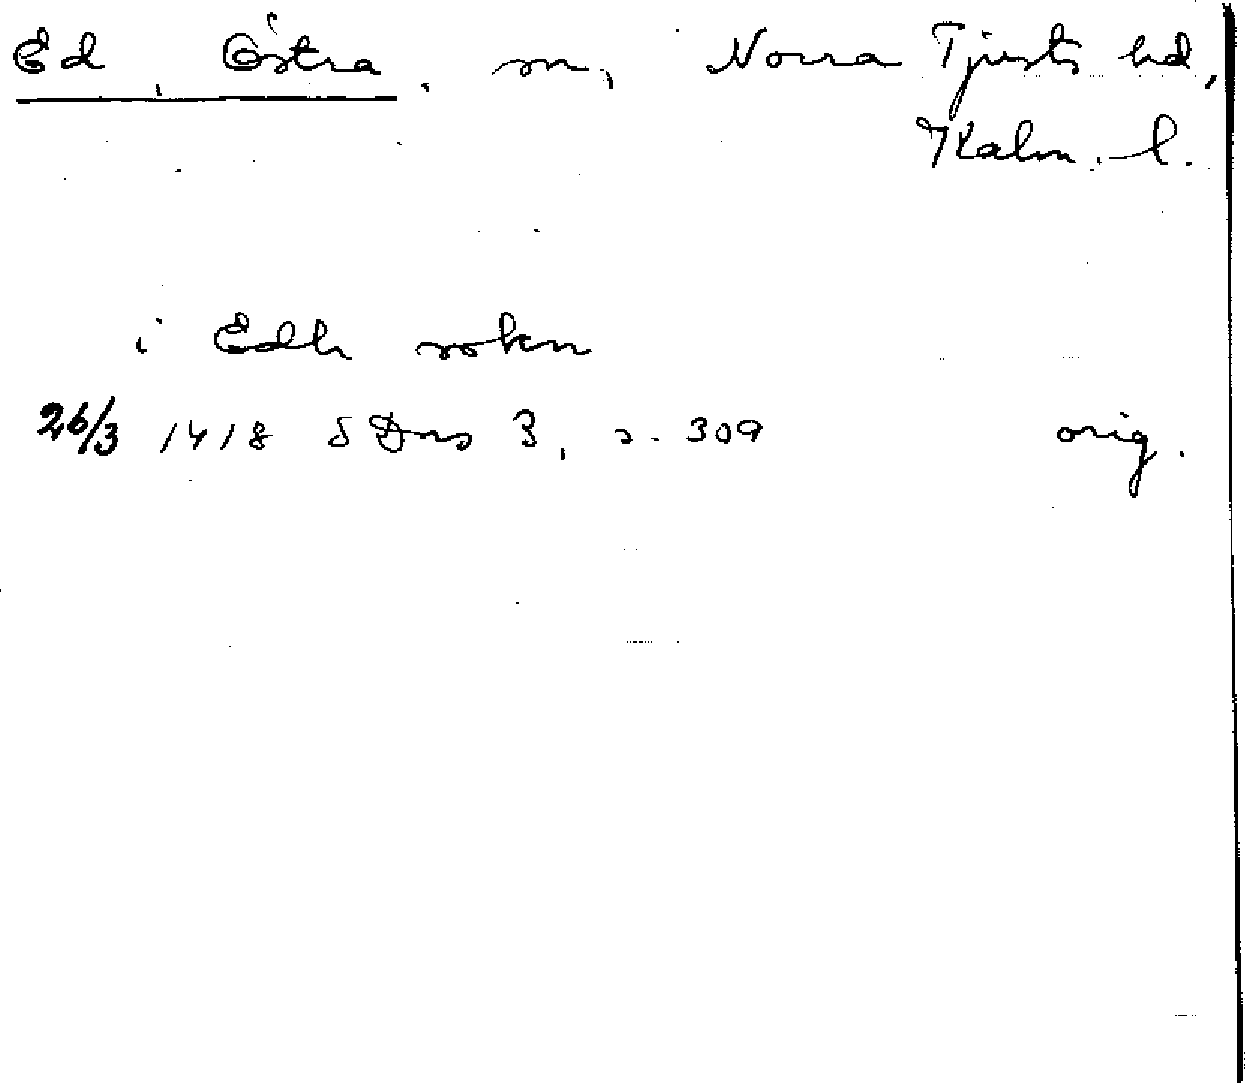 Ed, Östra, sn, Norra Tjusts hd,
Kalm. l.
i Edh sokn
26/3 1418 SDns 3, s. 309 orig.